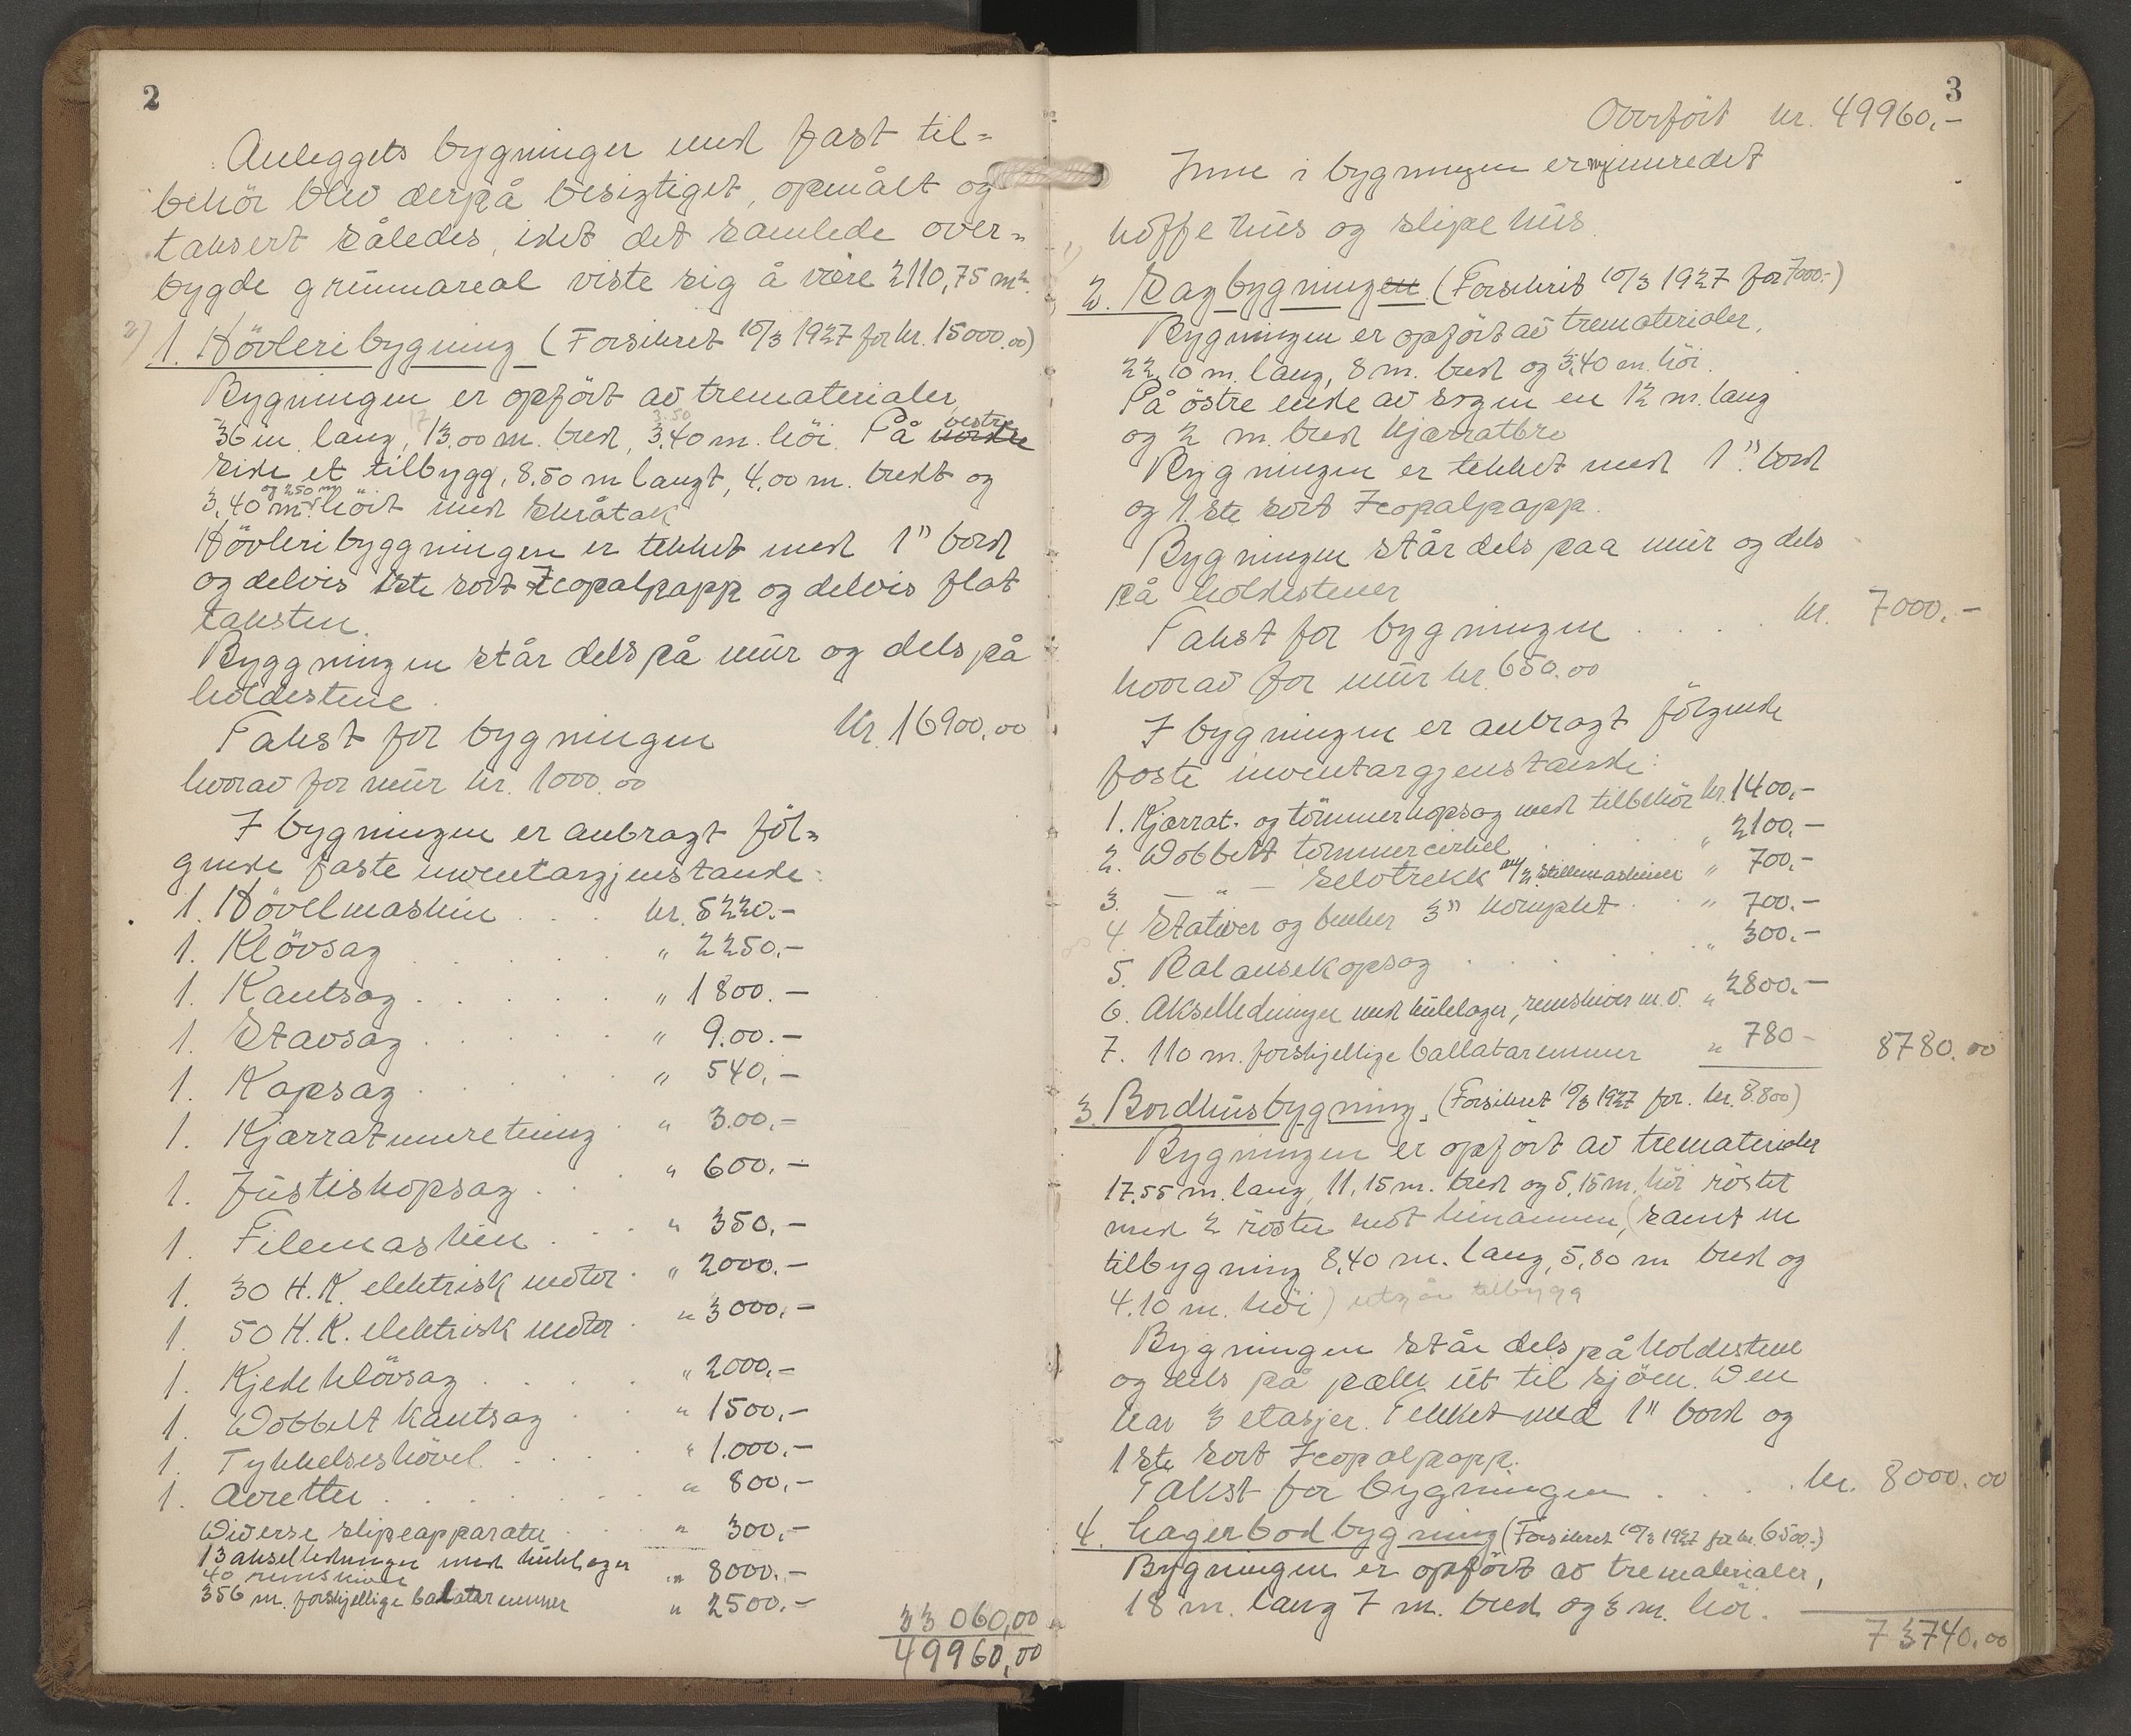 2
Anleggets bygninger med fast til=
behör blev derpå besigtiget, opmålt og
taksert således, idet det samlede over=
bygde grunnareal viste sig å være 2110,75 m².
2)
1. Hövleribygning (Forsikret 10/3 1927 for kr. 15000.00)
Bygningen er opfört av trematerialer,
17 3.50 vestre
36 m. lang, 13.00 m. bred, 3.40 m. höi. På nordre
side et tilbygg, 8.50 m langt, 4.00 m. bredt og
og 250 m
3,40 m. höit med skråtak
Hövleribyggningen er tekket med 1" bord
og delvis 1ste sort Icopalpapp og delvis flat
taksten.
Byggningen står dels på mur og dels på
holdestene.
Takst for bygningen kr. 16900.00
hvorav for mur kr. 1000.00
I bygningen er anbragt föl=
gende faste inventargjenstande:
1. Hövelmaskin . . . kr. 5220.-
1. Klövsag . . . . . " 2250.-
1. Kantsag . . . . . " 1800.-
1. Stavsag . . . . . " 9.00.-
1. Kapsag . . . . . " 540.-
1. Kjerratinnretning . " 3.00.-
1. Justiskopsag . . . " 600.-
1. Filemaskin . . . " 350.-
1. 30 H.K. elektrisk motor . " 2000.-
1. 50 H.K. elektrisk motor . " 3000.-
1. Kjedeklövsag . . . . " 2000.-
1. Dobbelt kantsag . . " 1500.-
1. Tykkelseshövel . . . . " 1.000.-
1. Avretter . . . . . . " 800.-
Diverse slipeapparater . . . " 300.-
13 akselledninger med kulelager
40 remskiver " 8000.-
356 m. forskjellige balataremmer " 2500.-
33060,00
49960,00
3
Overfört kr. 49960,-
Inne i bygningen er innredet
koffehus og slipehus.
2. Sagbygningen (Forsikret 10/3 1927 for 7000.-)
Bygningen er opfört av trematerialer,
22.10 m. lang, 8 m. bred og 3.40 m. höi.
På östre ende av sagen en 12 m. lang
og 2 m. bred kjerratbro
Bygningen er tekket med 1" bord
og 1.ste sort Icopalpapp.
Bygningen står dels paa mur og dels
på holdestener
Takst for bygningen . . . . kr. 7000.-
hvorav for mur kr. 650.00
I bygningen er anbragt fölgende
faste inventargjenstande:
1. Kjerrat- og tömmerkopsag med tilbehör kr. 1400.-
2. Dobbelt tömmercirkel . . . " 2100.-
3. — " — selvtrekk m/2 stillemaskiner " 700.-
4. Stativer og benker 3" komplet . . " 700.-
5. Balansekopsag . . . . . " 300.-
6. Akselledninger med kulelager, remskiver m.v. " 2800.-
7. 110 m. forskjellige ballataremmer " 780 - 8780.00
3. Bordhusbygning. (Forsikret 10/3 1927 for. kr. 8.800)
Bygningen er opfört av trematerialer
17.55 m. lang, 11.15 m. bred og 5.15 m. höi röstet
med 2 röster mot hinannen, (samt en
tilbygning 8,40 m. lang, 5,80 m bred og
4.10 m. höi) utgår tilbygg
Bygningen står dels på holdestene
og dels på pæler ut til sjöen. Den
har 3 etasjer. Tekket med 1" bord og
1ste sort Icopalpapp.
Takst for bygningen . . . . kr. 8000.00
4. Lagerbodbygning (Forsikret 10/3 1927 for kr. 6500.-)
Bygningen er opfört av trematerialer,
18 m. lang 7 m. bred og 3 m. höi.
73740.00